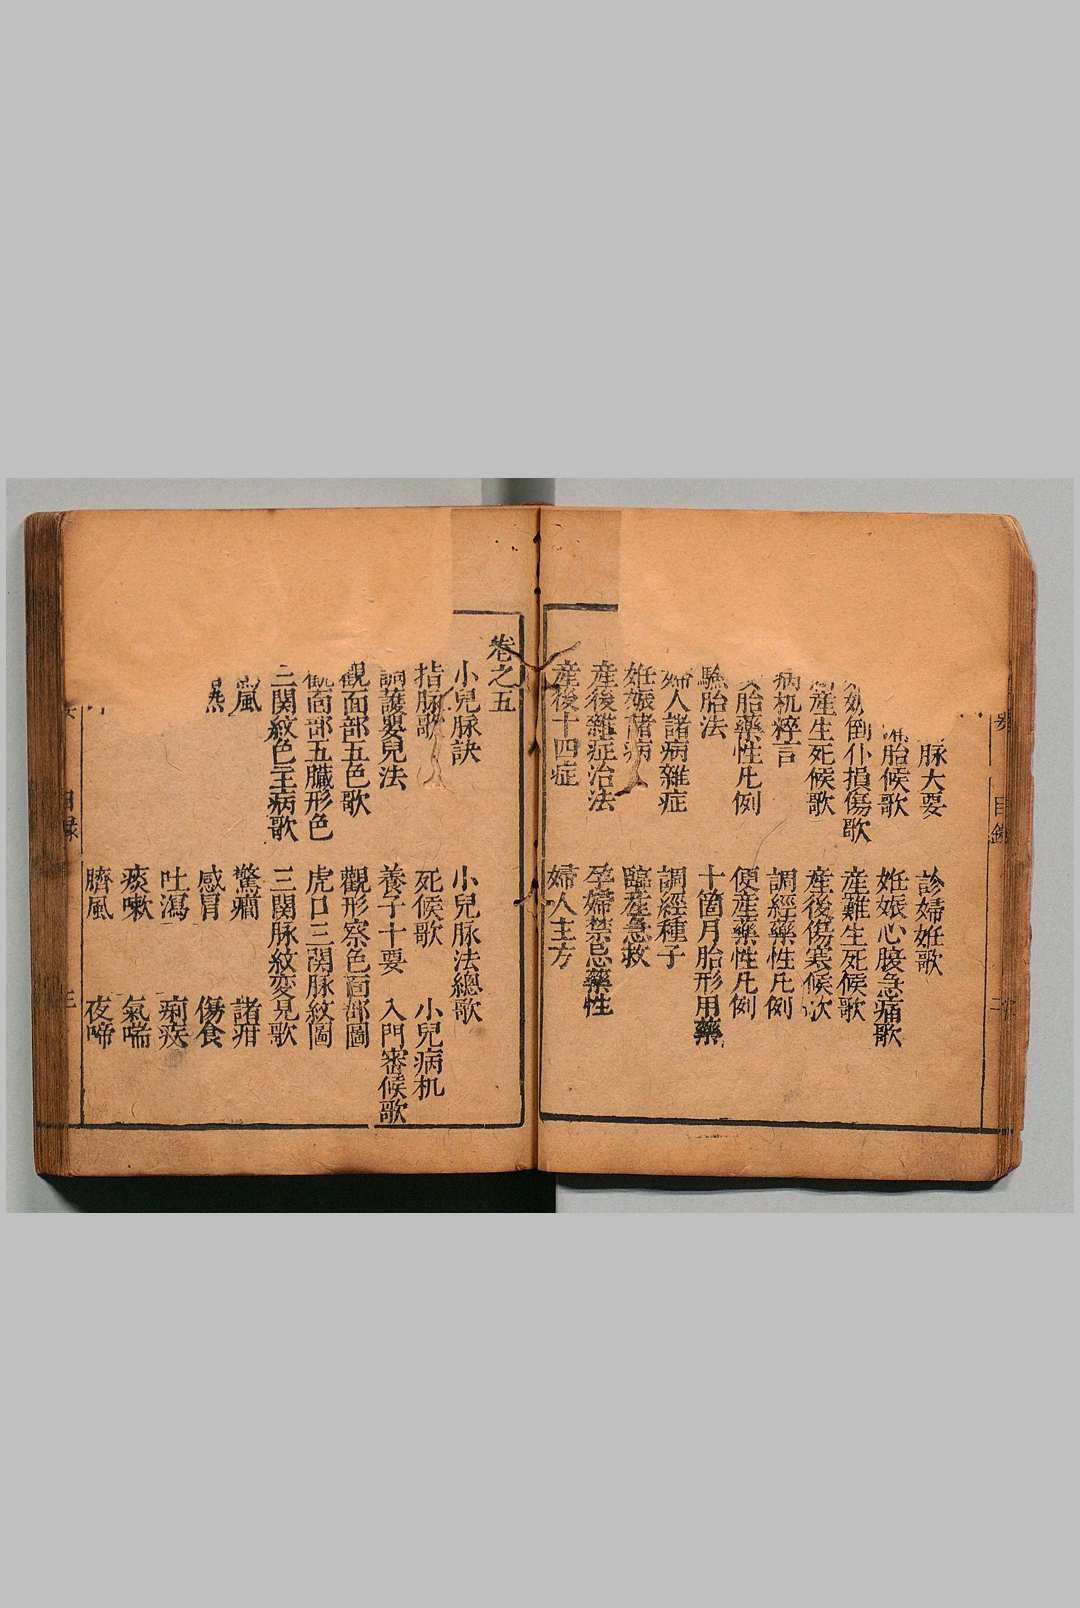 脈大要 診婦妊歌
胎候歌 妊娠心腹急痛歌
倒仆損傷歌 産難生死候歌
産生死候歌 産後傷寒候次
病机粹言 調經藥性凡例
胎藥性凡例 便産藥性凡例
驗胎法 十箇月胎形用藥
婦人諸病雜症 調經種子
妊娠諸病 臨産急救
産後雜症治法 孕婦禁忌藥性
産後十四症 婦人主方
目錄 二
卷之五
小兒脉訣 小兒脉法總歌
指脉歌 死候歌 小兒病机
調護嬰兒法 養子十要 入門審候歌
觀面部五色歌 觀形察色面部圖
觀面部五臟形色 虎口三関脉紋圖
三関紋色主病歌 三関脉紋変見歌
風 驚癇 諸疳
感冒 傷食
吐瀉 痢疾
痰嗽 氣喘
臍風 夜啼
目錄 三